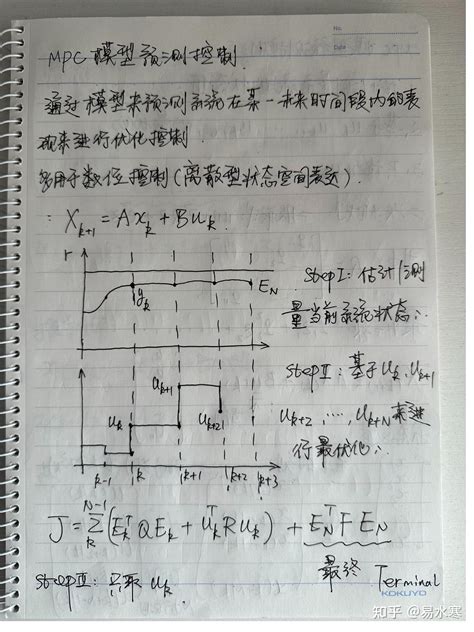 No.
Date
MPC 模型预测控制.
通过模型来预测系统在某一未来时间段内的表
现来进行优化控制.
多用于数位控制(离散型状态空间表达).
: X_{k+1} = A x_k + B u_k.
r
y_k
E_N
Step I: 估计/测
量当前系统状态.
u_k
u_{k+1}
u_{k+2}
k-1
k
k+1
k+2
k+3
Step II: 基于 u_k, u_{k+1}
u_{k+2}, ..., u_{k+N} 来进
行最优化.
J = Σ_k^{N-1} (E_k^T Q E_k + u_k^T R u_k) + E_N^T F E_N
最终 Terminal
Step III: 只取 u_k
KOKUYO
知乎 @易水寒